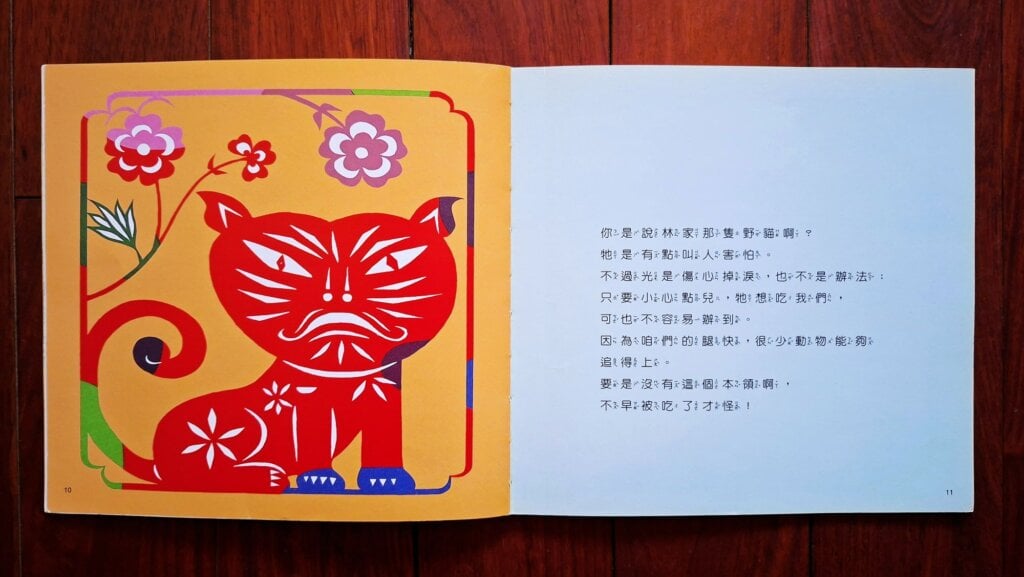 10
你是說林家那隻野貓啊？
牠是有點叫人害怕。
不過光是傷心掉淚，也不是辦法；
只要小心點兒，牠想吃我們，
可也不容易辦到。
因為咱們的腿快，很少動物能夠
追得上。
要是沒有這個本領啊，
不早被吃了才怪！
11